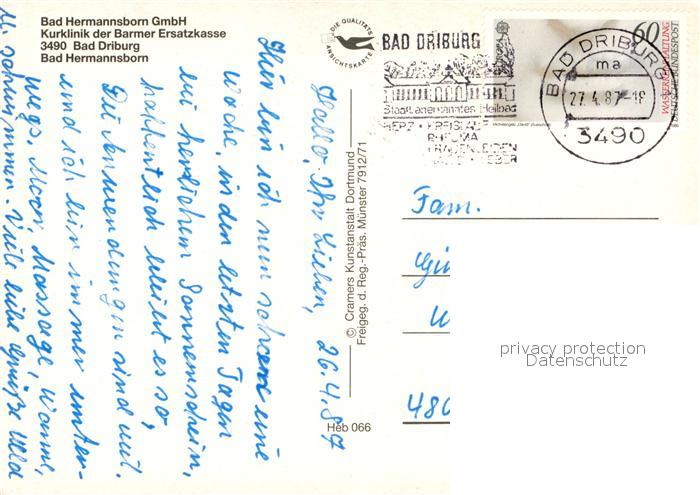 Bad Hermannsborn GmbH
Kurklinik der Barmer Ersatzkasse
3490 Bad Driburg
Bad Hermannsborn
DIE QUALITÄTS
ANSICHTSKARTE
BAD DRIBURG
Staatl. anerkanntes Heilbad
HERZ · KREISLAUF
RHEUMA
FRAUENLEIDEN
LEBER
60
WASSERERHALTUNG
DEUTSCHE BUNDESPOST
BAD DRIBURG
ma
27.4.87-18
3490
Hallo, Ihr Lieben, 26.4.87
Hier bin ich nun schon eine
Woche, in den letzten Tagen
bei herrlichem Sonnenschein,
hoffentlich bleibt es so,
Die Anwendungen sind gut.
und ich bin immer unter-
wegs. Moor, Massage, Wanne,
schwimmen. Viele liebe Grüße
© Cramers Kunstanstalt Dortmund
Freigeg. d. Reg.-Präs. Münster 7912/71
Heb 066
Fam.
480
privacy protection
Datenschutz